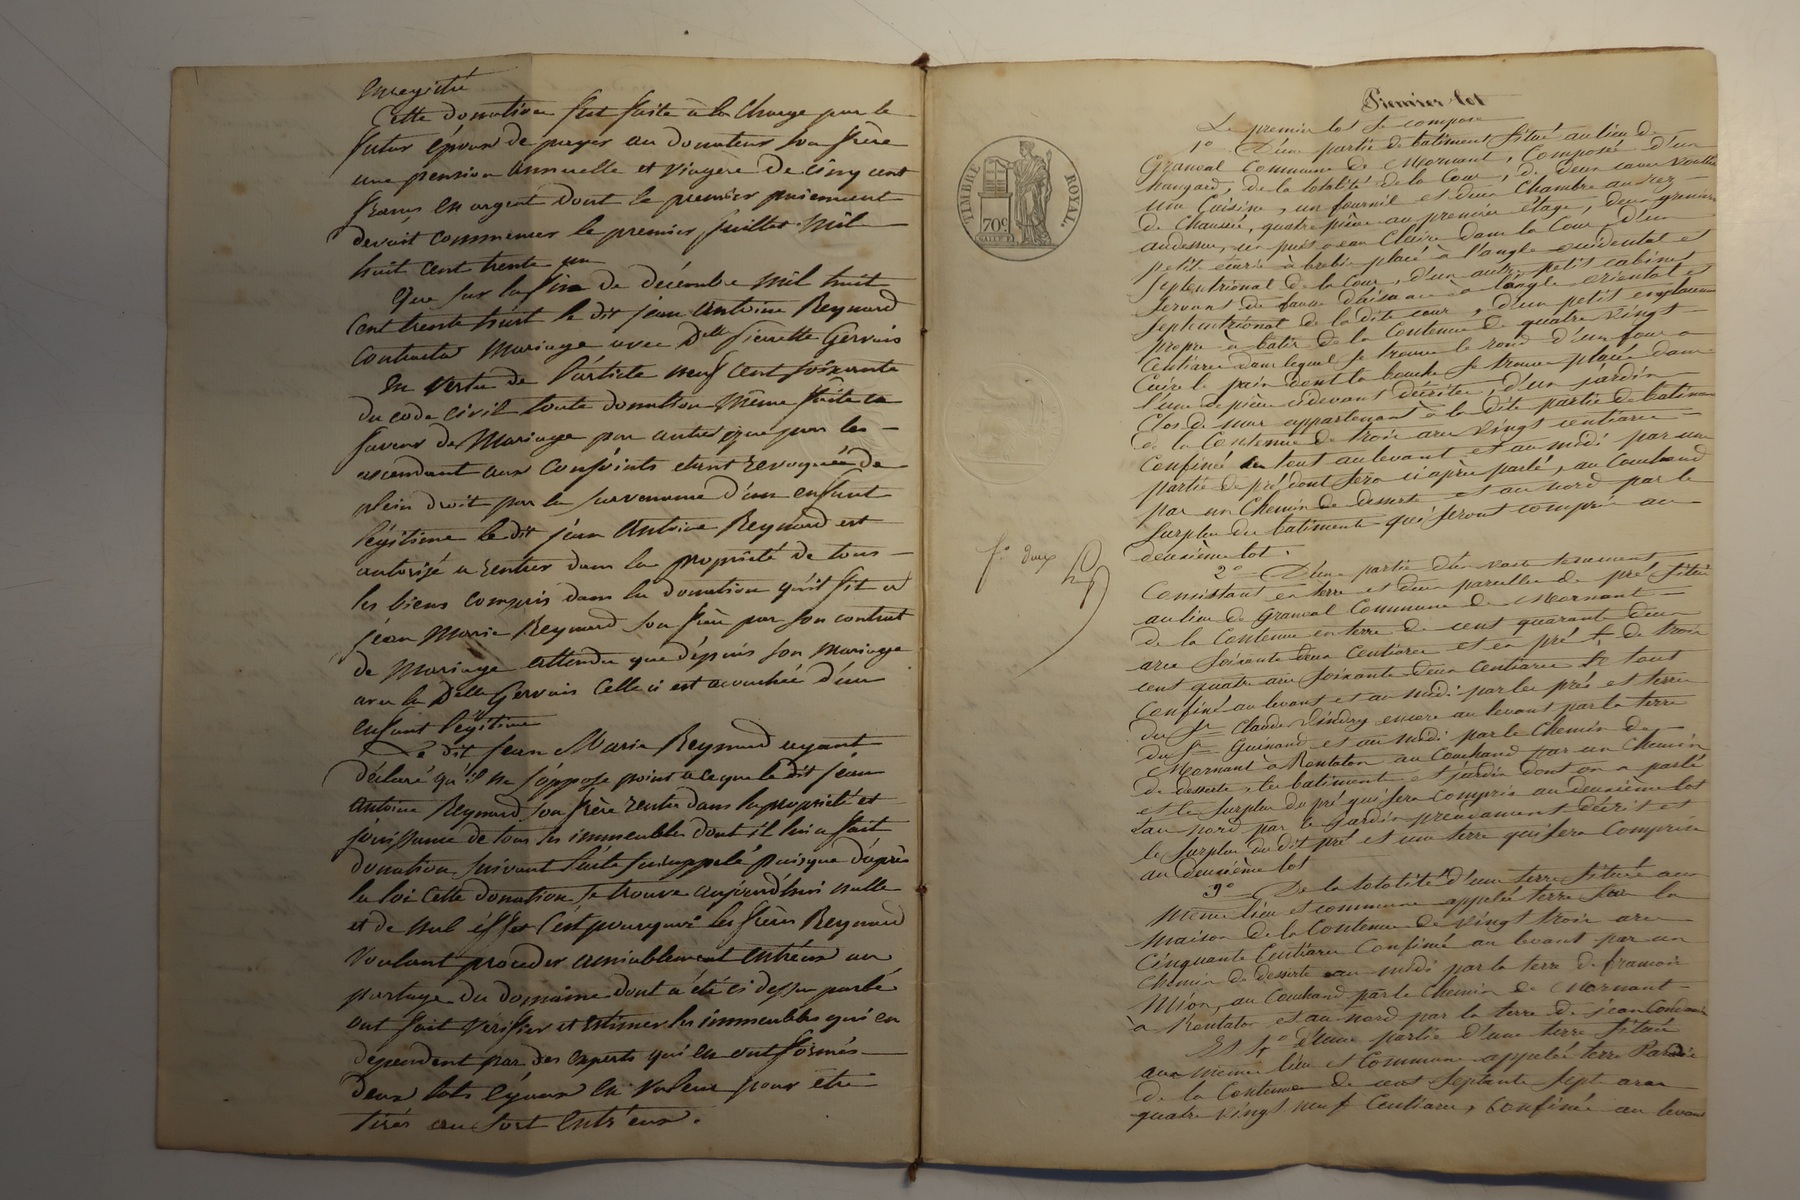 enregistré
Cette donation fut faite à la charge par le
futur époux de payer au donateur son frère
une pension annuelle et viagère de cinq cent
francs en argent dont le premier paiement
devait commencer le premier juillet mil
huit cent trente un
Que sur la fin de décembre mil huit
cent trente huit le dit jean Antoine Reynard
contracta mariage avec Dlle pierrette Gervais
En vertu de l'article neuf cent soixante
du code civil toute donation même faite en
faveur de Mariage par autre que par les
ascendant aux conjoints étant revoquée de
plein droit par la survenance d'un enfant
légitime le dit jean Antoine Reynard est
autorisé a rentrer dans la propriété de tous
les biens compris dans la donation qu'il fit a
jean Marie Reynard son frère par son contrat
de Mariage attendu que dépuis son mariage
avec la Dlle Gervais Celle ci est accouchée d'un
enfant légitime
Le dit jean Marie Reynard ayant
déclaré qu'il ne s'oppose point a ce que le dit jean
antoine Reynard son frère rentre dans la propriété et
jouissance de tous les immeubles dont il lui a fait
donation suivant l'acte surappelé puisque d'après
la loi cette donation se trouve aujourd'hui nulle
et de nul effet C'est pourquoi les frères Reynard
voulant procéder amiablement entr'eux au
partage du domaine dont a été ci dessu parlé
ont fait vérifier et estimer les immeubles qui en
dépendent par des experts qui en ont formés
deux lots égaux en valeur pour être
tirés au sort entr'eux.
TIMBRE ROYAL.
70c
fo. deux
Premier lot
Le premier lot se compose
1o D'une partie de batiment situé au lieu de
Granval commune de Mornant, composé d'un
hangard, de la totalité de la Cour, de deux caves voutés
une Cuisine, un fournil et deux Chambre au rez
de Chaussée, quatre pièce au premier étage, deux greniers
audessus, un puis a eau Claire dans la Cour, d'un
petit écurie à brebis placé à l'angle occidental et
septentrional de la Cour, d'un autre petit cabinet
servant de fausse d'aisance à l'angle oriental et
septentrional de la dite cour, d'un petit emplacement
propre à batir de la Contenue de quatre vingt
Centiares dans lequel se trouve le rond d'un four a
Cuire le pain dont la bouche se trouve placée dans
l'une des pièce cidevant décrite, d'un jardin
Clos de mur appartenant à la dite partie de batiment
de la Contenue de trois ares vingt centiares
Confiné le tout au levant et au midi par une
partie de pré dont sera ci après parlé, au Couchand
par un Chemin de desserte et au nord par le
Surplus du batiment qui seront compris au
deuxième lot.
2o D'une partie d'un vaste tenement
Consistant en terre et d'une parcelle de pré situé
au lieu de Granval Commune de Mornant
de la Contenue en terre de cent quarante deux
ares soixante deux Centiares et en pré de trois
cent quatre ares soixante deux centiares le tout
Confiné au levant et au midi par les prés et terre
du Sr Claude Vindry encore au levant par la terre
du Sr Guinand et au midi par le Chemin de
Mornant à Rontalon au Couchand par un Chemin
de desserte, les batiment et jardin dont on a parlé
et le surplus du pré qui sera compris au deuxième lot
au nord par le jardin précédament décrit et
le surplus du dit pré et une terre qui sera comprise
au deuxième lot
3o De la totalité d'une terre située aux
même lieu et commune appelée terre sur la
maison de la Contenue de vingt trois ares
Cinquante Centiares Confiné au levant par un
Chemin de desserte au midi par la terre de francois
Mion, au Couchand par le Chemin de Mornant
à Rontalon et au nord par la terre de jean
Et 4o d'une partie d'une terre située
aux même lieu et Commune appelée terre
de la Contenue de cent septante sept ares
quatre vingt neuf Centiares, confinée au levant